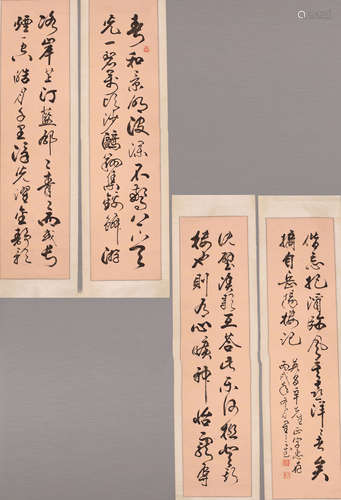 春和景明波瀾不驚上下天
光一碧萬頃沙鷗翔集錦鱗游
泳岸芷汀蘭郁々青々而或長
煙一空皓月千里浮光躍金靜影
沈璧漁歌互答此樂何極登斯
樓也則有心曠神怡寵辱
偕忘把酒臨風其喜洋々者矣
摘自岳陽樓記